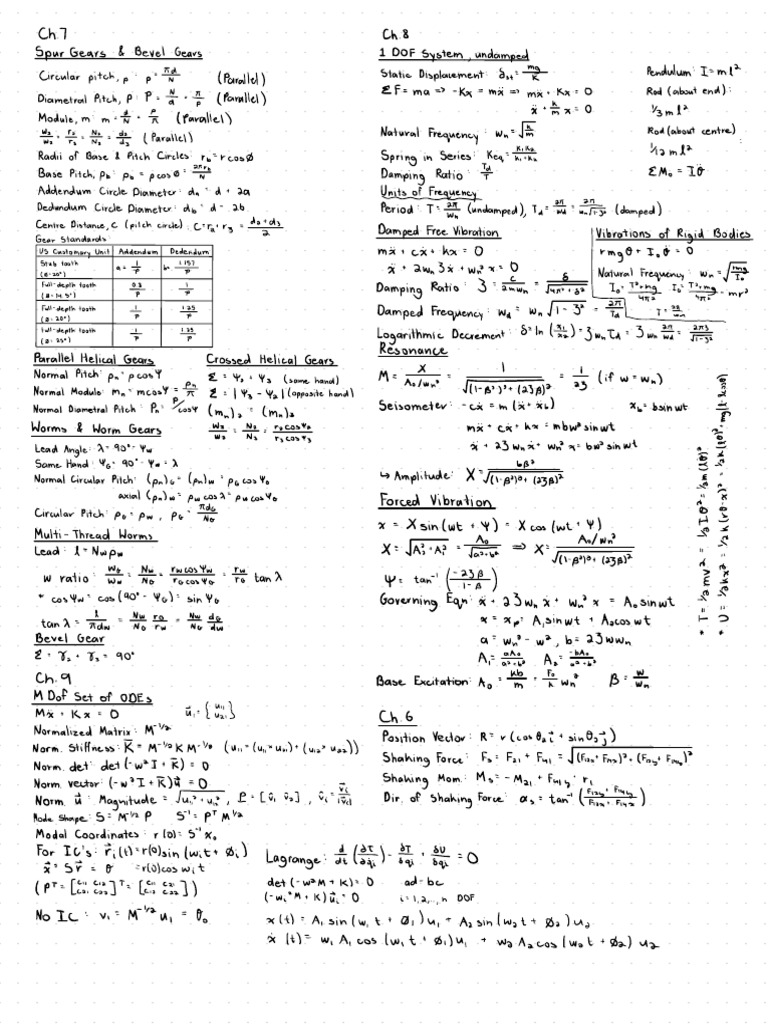 Ch.7
Spur Gears & Bevel Gears
Circular pitch, p : p = πd/N (Parallel)
Diametral Pitch, P : P = N/d = π/p (Parallel)
Module, m : m = d/N = p/π (Parallel)
ω₃/ω₂ = r₂/r₃ = N₂/N₃ = d₂/d₃ (Parallel)
Radii of Base & Pitch Circles: r_b = r cos Ø
Base Pitch, p_b : p_b = p cos Ø = 2πr_b/N
Addendum Circle Diameter: dₐ = d + 2a
Dedendum Circle Diameter: d_b = d - 2b
Centre Distance, C (pitch circle) : C = r₂ + r₃ = (d₂ + d₃)/2
Gear Standards:
US Customary Unit Addendum Dedendum
Stub tooth (Ø = 20°) a = 1/P b = 1.157/P
Full-depth tooth (Ø = 14.5°) 0.8/P 1/P
Full-depth tooth (Ø = 20°) 1/P 1.25/P
Full-depth tooth (Ø = 25°) 1/P 1.25/P
Parallel Helical Gears
Normal Pitch: pₙ = p cos Ψ
Normal Module: mₙ = m cos Ψ = pₙ/π
Normal Diametral Pitch: Pₙ = P/cos Ψ
Crossed Helical Gears
Σ = Ψ₂ + Ψ₃ (same hand)
Σ = |Ψ₃ - Ψ₂| (opposite hand)
(mₙ)₂ = (mₙ)₃
ω₃/ω₂ = N₂/N₃ = r₂ cos Ψ₂/r₃ cos Ψ₃
Worms & Worm Gears
Lead Angle: λ = 90° - Ψ_w
Same Hand: Ψ_G = 90° - Ψ_w = λ
Normal Circular Pitch: (pₙ)_G = (pₙ)_w = p_G cos Ψ_G
axial (pₙ)_w = p_w cos λ = p_G cos Ψ_G
Circular Pitch: p_G = p_w, p_G = πd_G/N_G
Multi-Thread Worms
Lead: l = N_w p_w
w ratio: ω_G/ω_w = N_w/N_G = r_w cos Ψ_w/r_G cos Ψ_G = r_w/r_G tan λ
* cos Ψ_w = cos (90° - Ψ_G) = sin Ψ_G
tan λ = l/πd_w = N_w/N_G r_G/r_w = N_w/N_G d_G/d_w
Bevel Gear
Σ = γ₂ + γ₃ = 90°
Ch.9
M Dof Set of ODEs
Mẍ + Kx = 0 u⃗₁ = {u₁₁ u₂₁}
Normalized Matrix: M^-1/2
Norm. Stiffness: K̄ = M^-1/2 K M^-1/2 (u₁₁ = (u₁₁ × u₂₁) + (u₁₂ × u₂₂))
Norm. det: det (-w²I + K̄) = 0
Norm. vector: (-w²I + K̄)u⃗ = 0
Norm. u⃗: Magnitude = √(u₁² + u₂²), P = [v̂₁ v̂₂], v̂₁ = v⃗₁/|v⃗₁|
Mode Shape: S = M^-1/2 P S⁻¹ = P^T M^1/2
Modal Coordinates: r(0) = S⁻¹ x₀
For IC's: r⃗ᵢ(t) = r(0) sin (wᵢt + Øᵢ)
x⃗ = Sr⃗ = θ = r(0) cos wᵢt
(P^T = [c₁₁ c₁₂ c₂₁ c₂₂]^T = [c₁₁ c₂₁ c₁₂ c₂₂])
No IC: v₁ = M^-1/2 u₁ = θ₀
Ch.8
1 DOF System, undamped
Static Displacement: δst = mg/K
ΣF = ma => -Kx = mẍ => mẍ + Kx = 0
ẍ + k/m x = 0
Natural Frequency: wₙ = √(k/m)
Spring in Series: Keq = k₁k₂/(k₁+k₂)
Damping Ratio: Td/T
Pendulum: I = ml²
Rod (about end):
1/3 ml²
Rod (about centre):
1/12 ml²
ΣM₀ = Iθ̈
Units of Frequency
Period: T = 2π/wₙ (undamped), Td = 2π/wd = 2π/(wₙ√(1-ζ²)) (damped)
Damped Free Vibration
mẍ + cẋ + kx = 0
ẍ + 2wₙζẋ + wₙ²x = 0
Damping Ratio: ζ = c/2mwₙ = δ/√(4π² + δ²)
Damped Frequency: wd = wₙ√(1-ζ²) = 2π/Td
Logarithmic Decrement: δ = ln (x₁/x₂) = ζwₙTd = ζwₙ 2π/wd = 2πζ/√(1-ζ²)
Vibrations of Rigid Bodies
rmgθ + I₀θ̈ = 0
Natural Frequency: wₙ = √(rmg/I₀)
I₀ = T²rmg/4π² I_G = T²rmg/4π² - mr²
T = 2π/wₙ
Resonance
M = X/(A₀/wₙ²) = 1/√((1-β²)² + (2ζβ)²) = 1/2ζ (if w = wₙ)
Seisometer: -cẋ = m(ẍ + ẍb) xb = b sin wt
mẍ + cẋ + kx = mbw² sin wt
ẍ + 2ζwₙẋ + wₙ²x = bw² sin wt
↳ Amplitude: X = bβ²/√((1-β²)² + (2ζβ)²)
Forced Vibration
x = X sin (wt + Ψ) = X cos (wt + Ψ)
X = √(A₁² + A₂²) = A₀/√(a² + b²) => X = (A₀/wₙ²)/√((1-β²)² + (2ζβ)²)
Ψ = tan⁻¹ (-2ζβ/1-β)
Governing Eqn: ẍ + 2ζwₙẋ + wₙ²x = A₀ sin wt
x = xp = A₁ sin wt + A₂ cos wt
a = wₙ² - w², b = 2ζwwₙ
A₁ = aA₀/(a²+b²) A₂ = -bA₀/(a²+b²)
Base Excitation: A₀ = kb/m = F₀/k wₙ² β = w/wₙ
* T = ½mv² = ½Iθ̇² = ½m(lθ̇)²
* U = ½kx² = ½k(rθ-x)² = ½k(lθ)² + mg(l-l cos θ)
Ch.6
Position Vector: R = r(cos θ₂ i⃗ + sin θ₂ j⃗)
Shaking Force: Fs = F₂₁ + F₄₁ = √((F₁₂ₓ + F₁₄ₓ)² + (F₁₂y + F₁₄y)²)
Shaking Mom: Ms = -M₂₁ + F₄₁y · r₁
Dir. of Shaking Force: αs = tan⁻¹ ((F₁₂y + F₁₄y)/(F₁₂ₓ + F₁₄ₓ))
Lagrange: d/dt (∂T/∂q̇ᵢ) - ∂T/∂qᵢ + ∂U/∂qᵢ = 0
det (-w²M + K) = 0 ad - bc
(-wᵢ²M + K)u⃗ᵢ = 0 i = 1,2,..., n DOF
x(t) = A₁ sin (w₁t + Ø₁)u₁ + A₂ sin (w₂t + Ø₂)u₂
ẋ(t) = w₁A₁ cos (w₁t + Ø₁)u₁ + w₂A₂ cos (w₂t + Ø₂)u₂